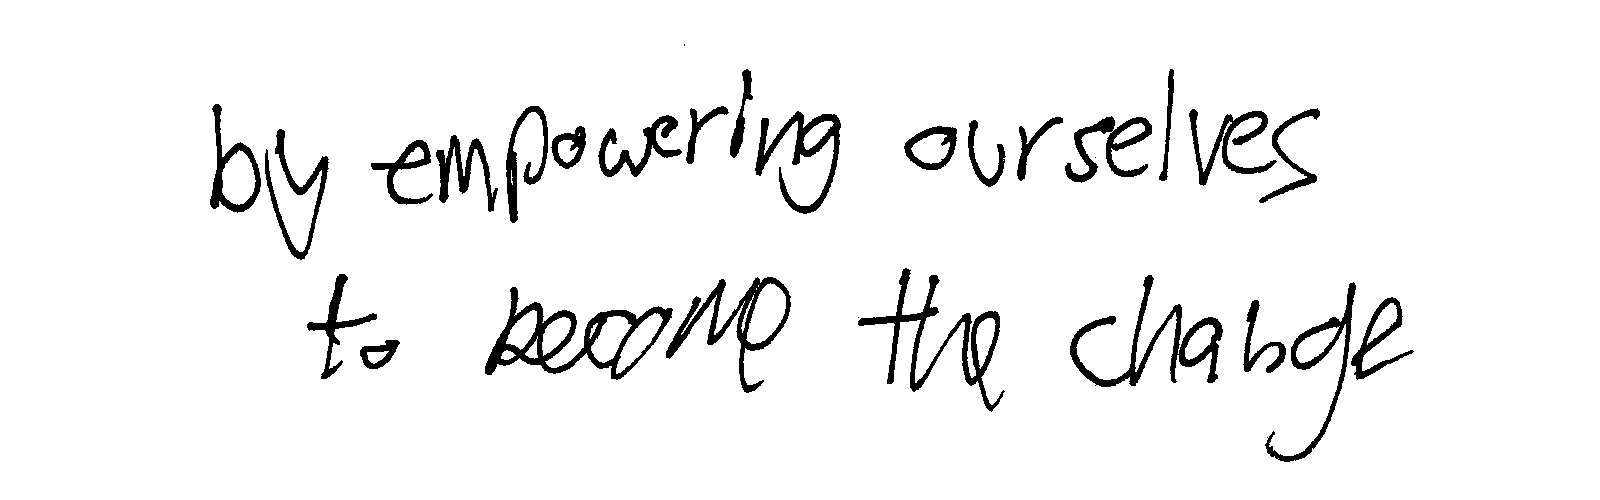 by empowering ourselves
to become the change